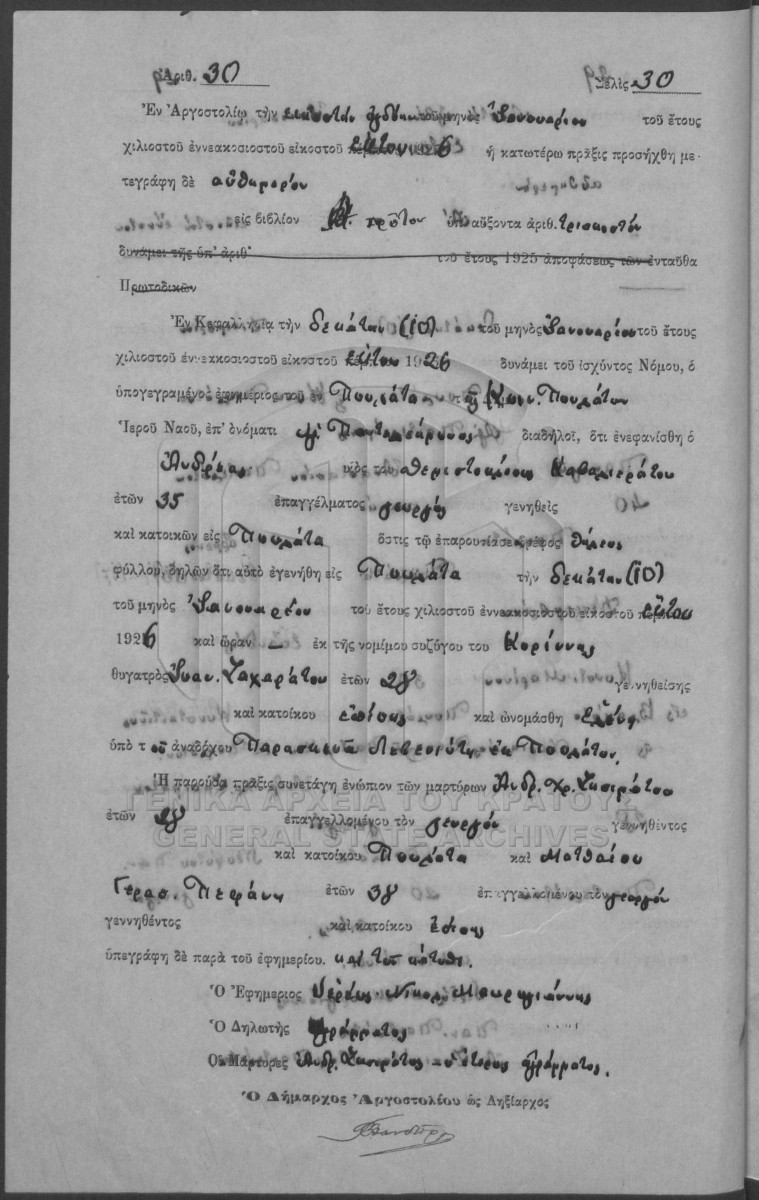 Ἀριθ. 30 Σελὶς 30
Ἐν Ἀργοστολίῳ τὴν εἰκοστὴν τοῦ μηνὸς Ἰανουαρίου τοῦ ἔτους
χιλιοστοῦ ἐννεακοσιοστοῦ εἰκοστοῦ ἕκτου 1926 ἡ κατωτέρω πρᾶξις προσήχθη με-
τεγράφη δὲ αὐθημερὸν
εἰς βιβλίον πρῶτον ὑπ' αὔξοντα ἀριθ. τριακοστὸν
δυνάμει τῆς ὑπ' ἀριθ. τοῦ ἔτους 1925 ἀποφάσεως τῶν ἐνταῦθα
Πρωτοδικῶν
Ἐν Κεφαλληνίᾳ τὴν δεκάτην (10) τοῦ μηνὸς Ἰανουαρίου τοῦ ἔτους
χιλιοστοῦ ἐννεακοσιοστοῦ εἰκοστοῦ ἕκτου 1926 δυνάμει τοῦ ἰσχύντος Νόμου, ὁ
ὑπογεγραμένος ἐφημέριος τοῦ ἐν Πουλάτα τῆς Κοιν. Πουλάτων
Ἱεροῦ Ναοῦ, ἐπ' ὀνόματι διαδηλοῖ, ὅτι ἐνεφανίσθη ὁ
Ἀνδρέας υἱὸς τοῦ Θεμιστοκλέους Καβαλιεράτου
ἐτῶν 35 ἐπαγγέλματος γεωργὸς γενηθεὶς
καὶ κατοικῶν εἰς Πουλάτα ὅστις τῷ ἐπαρουσίασε βρέφος θήλεος
φύλλου, δηλῶν ὅτι αὐτὸ ἐγενήθη εἰς Πουλάτα τὴν δεκάτην (10)
τοῦ μηνὸς Ἰανουαρίου τοῦ ἔτους χιλιοστοῦ ἐννεακοσιοστοῦ εἰκοστοῦ ἕκτου
1926 καὶ ὥραν — ἐκ τῆς νομίμου συζύγου του Κορίννης
θυγατρὸς Ἰωάν. Ζαχαράτου ἐτῶν 28 γεννηθείσης
καὶ κατοίκου ἐπίσης καὶ ὠνομάσθη
ὑπὸ τοῦ ἀναδόχου Παρασκευᾶ ἐκ Πουλάτων
Ἡ παροῦσα πρᾶξις συνετάγη ἐνώπιον τῶν μαρτύρων Ἀνδρ. Χρ.
ἐτῶν 28 ἐπαγγελλομένου τὸν γεωργὸν γεννηθέντος
καὶ κατοίκου Πουλάτα καὶ Ματθαίου
Γερασ. Πεφάνη ἐτῶν 38 ἐπαγγελλομένου τὸν γεωργὸν
γεννηθέντος καὶ κατοίκου ἐπίσης
ὑπεγράφη δὲ παρὰ τοῦ ἐφημερίου.
Ὁ Ἐφημεριος Ἱερεὺς Νικολ. Μακρυγιάννης
Ὁ Δηλωτὴς ἀγράμματος
Οἱ Μάρτυρες Ἀνδρ. ἀγράμματος.
Ὁ Δήμαρχος Ἀργοστολίου ὡς Ληξίαρχος
ΓΕΝΙΚΑ ΑΡΧΕΙΑ ΤΟΥ ΚΡΑΤΟΥΣ
GENERAL STATE ARCHIVES